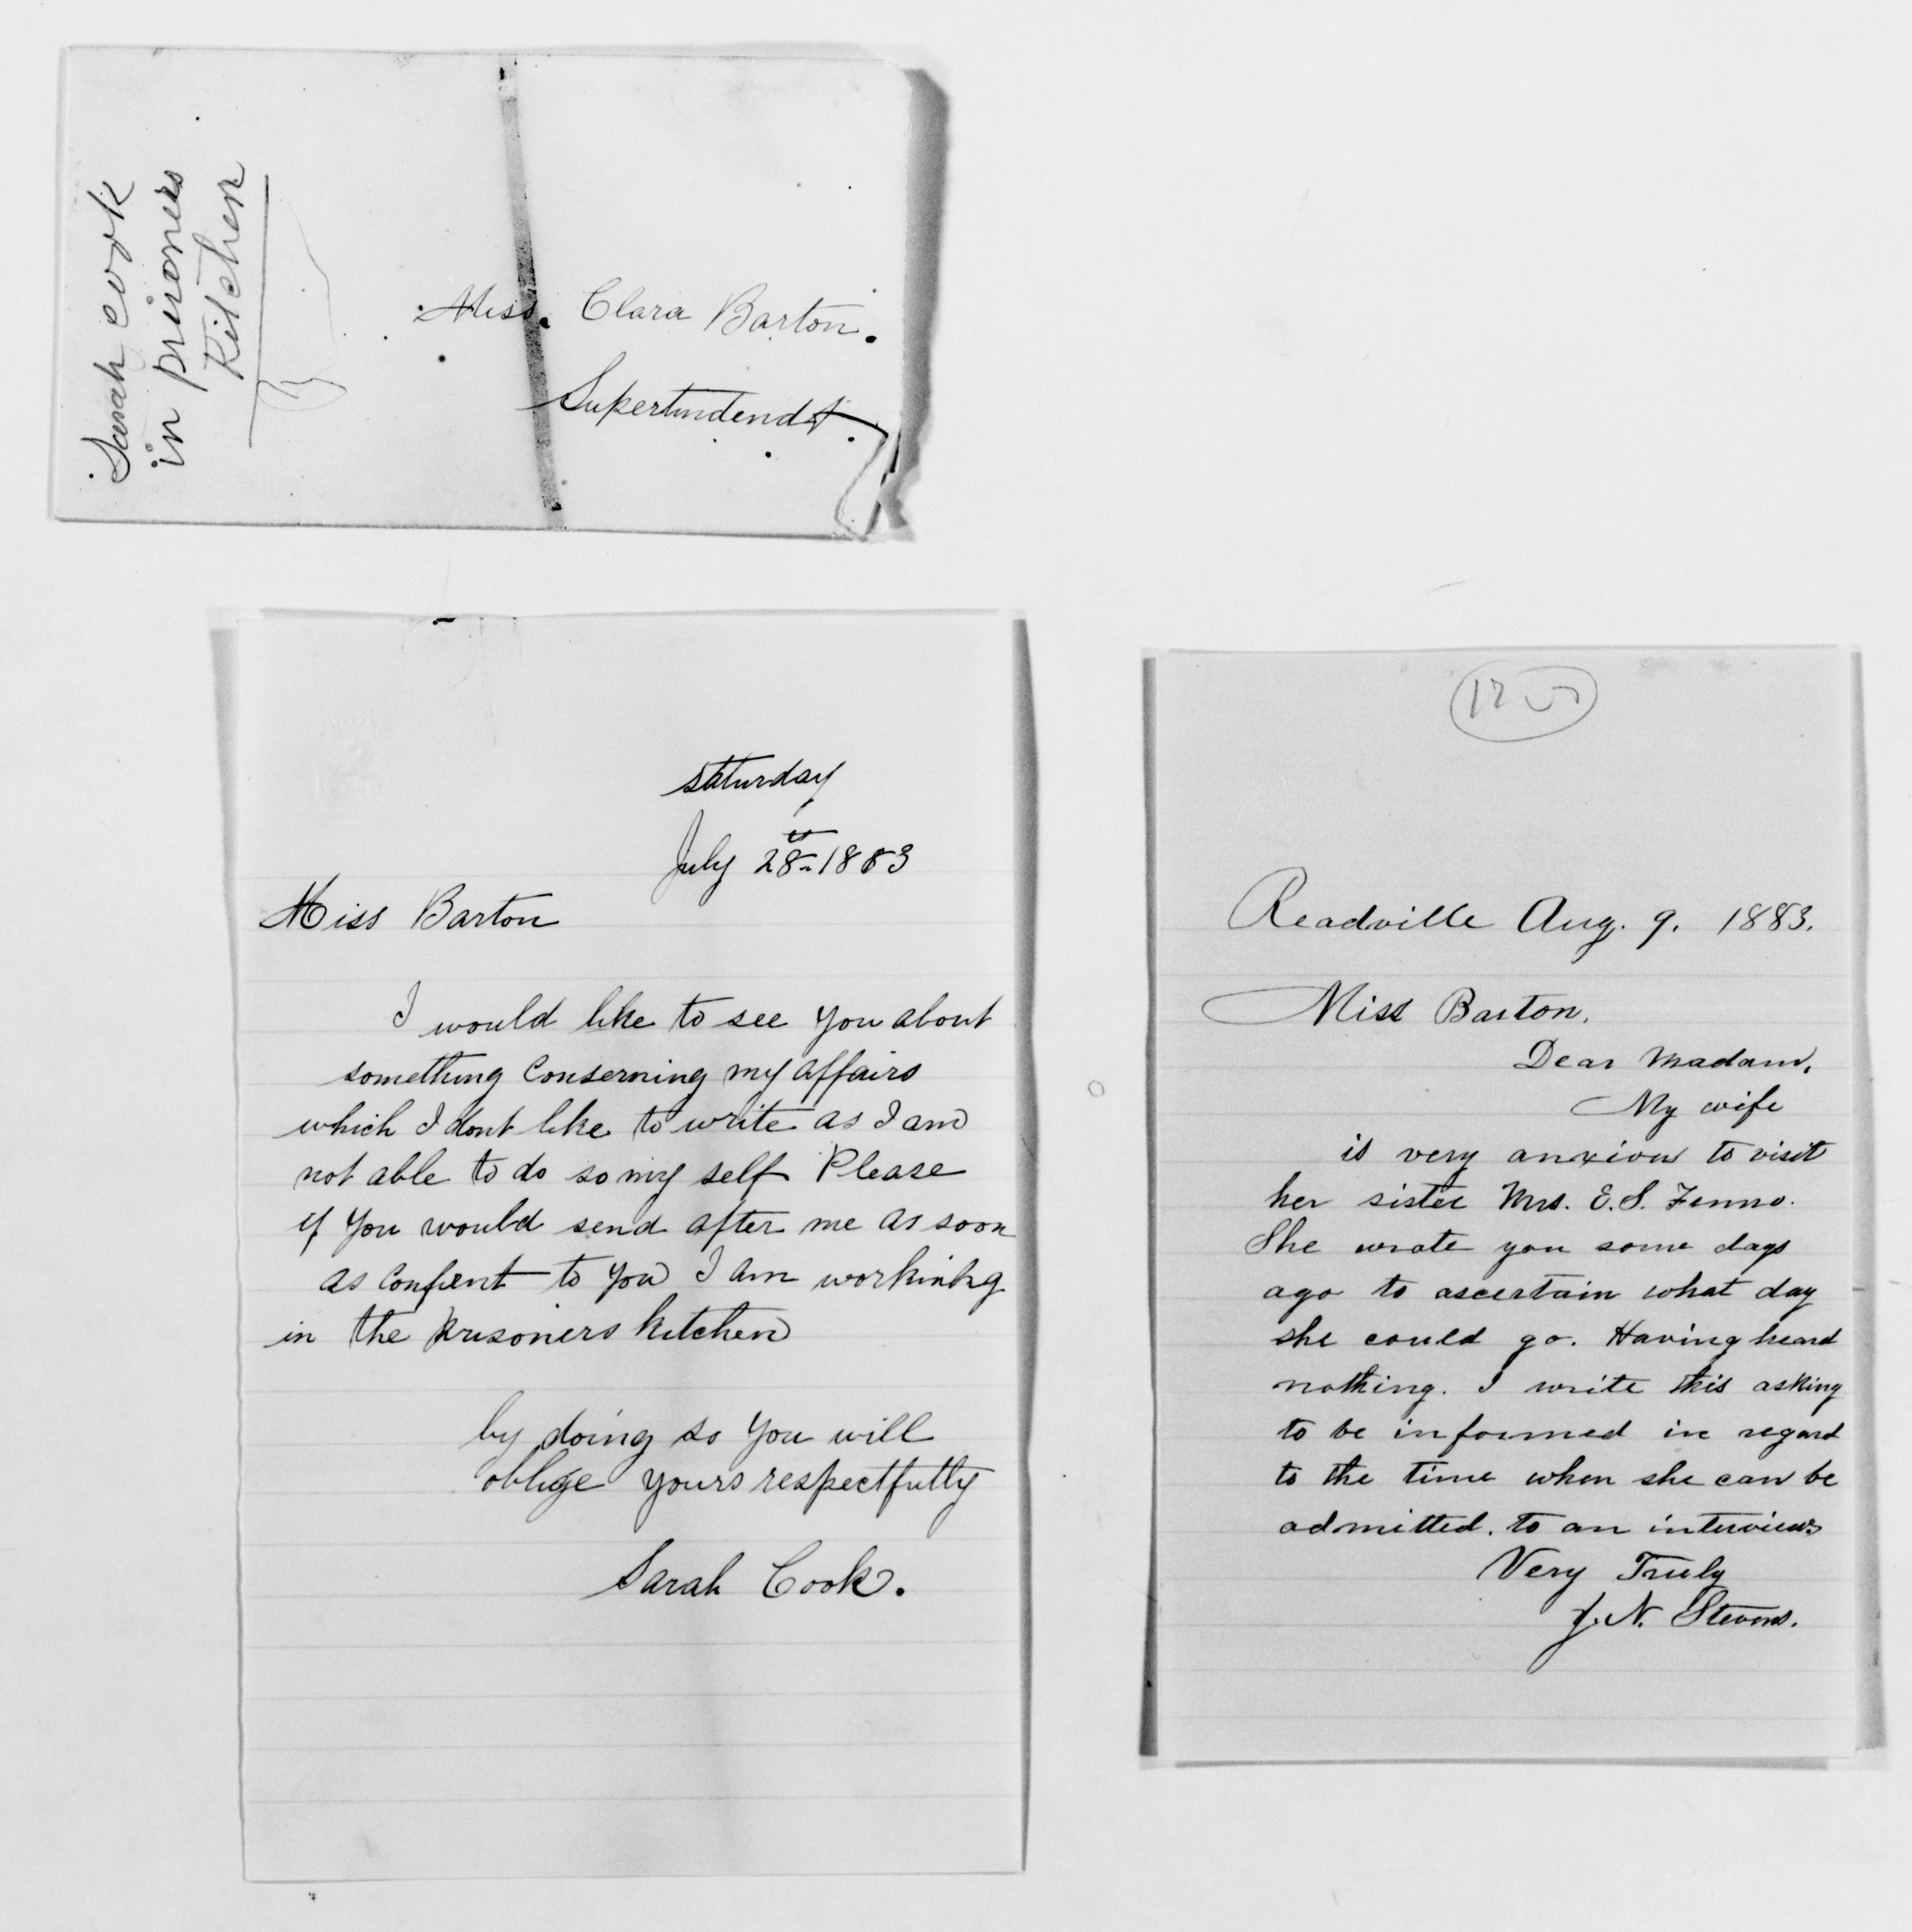 Sarah Cook
in prisoners
Kitchen
Miss. Clara Barton.
Supertindendt.
saturday
July 28th 1883
Miss Barton
I would like to see you about
something Conserning my affairs
which I dont like to write as I am
not able to do so my self Please
if you would send after me as soon
as to you I am working
in the prisoners kitchen
by doing so you will
oblige yours respectfully
Sarah Cook.
Readville Aug. 9. 1883.
Miss Barton.
Dear Madam,
My wife
is very anxious to visit
her sister Mrs. E. S. Fenno.
She wrote you some days
ago to ascertain what day
she could go. Having heard
nothing. I write this asking
to be informed in regard
to the time when she can be
admitted. to an interview
Very Truly
J. N. Stevens.